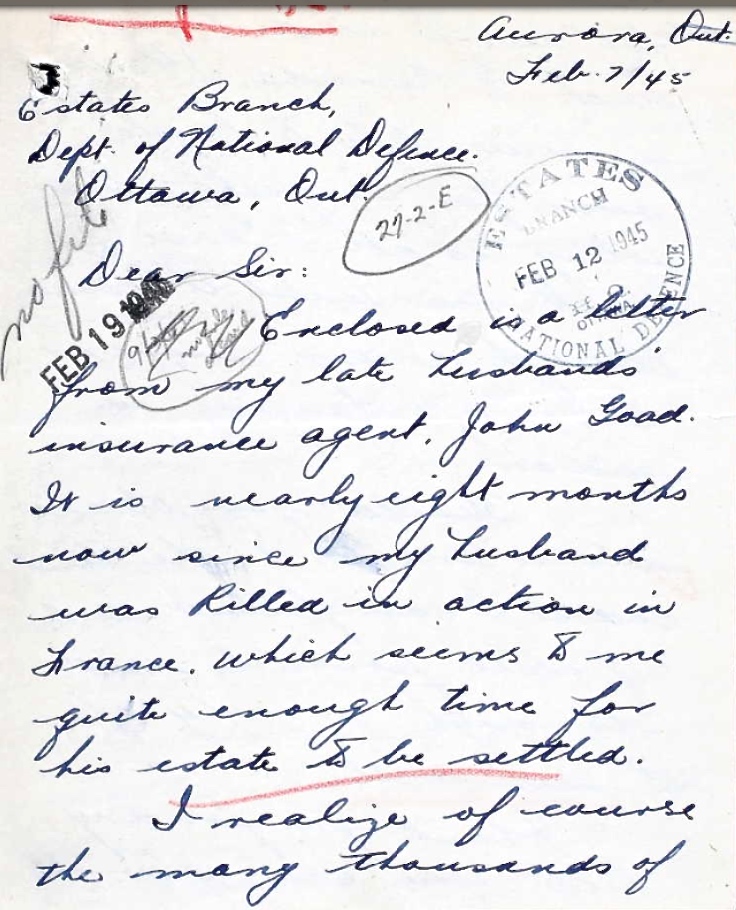 Aurora, Ont.
Feb. 7/45
Estates Branch,
Dept. of National Defence.
Ottawa, Ont.
27-2-E
no file
ESTATES
BRANCH
FEB 12 1945
OTTAWA
NATIONAL DEFENCE
Dear Sir:
FEB 19 1945
Enclosed is a letter
from my late husbands'
insurance agent, John Goad.
It is nearly eight months
now since my husband
was killed in action in
France. which seems to me
quite enough time for
his estate to be settled.
I realize of course
the many thousands of